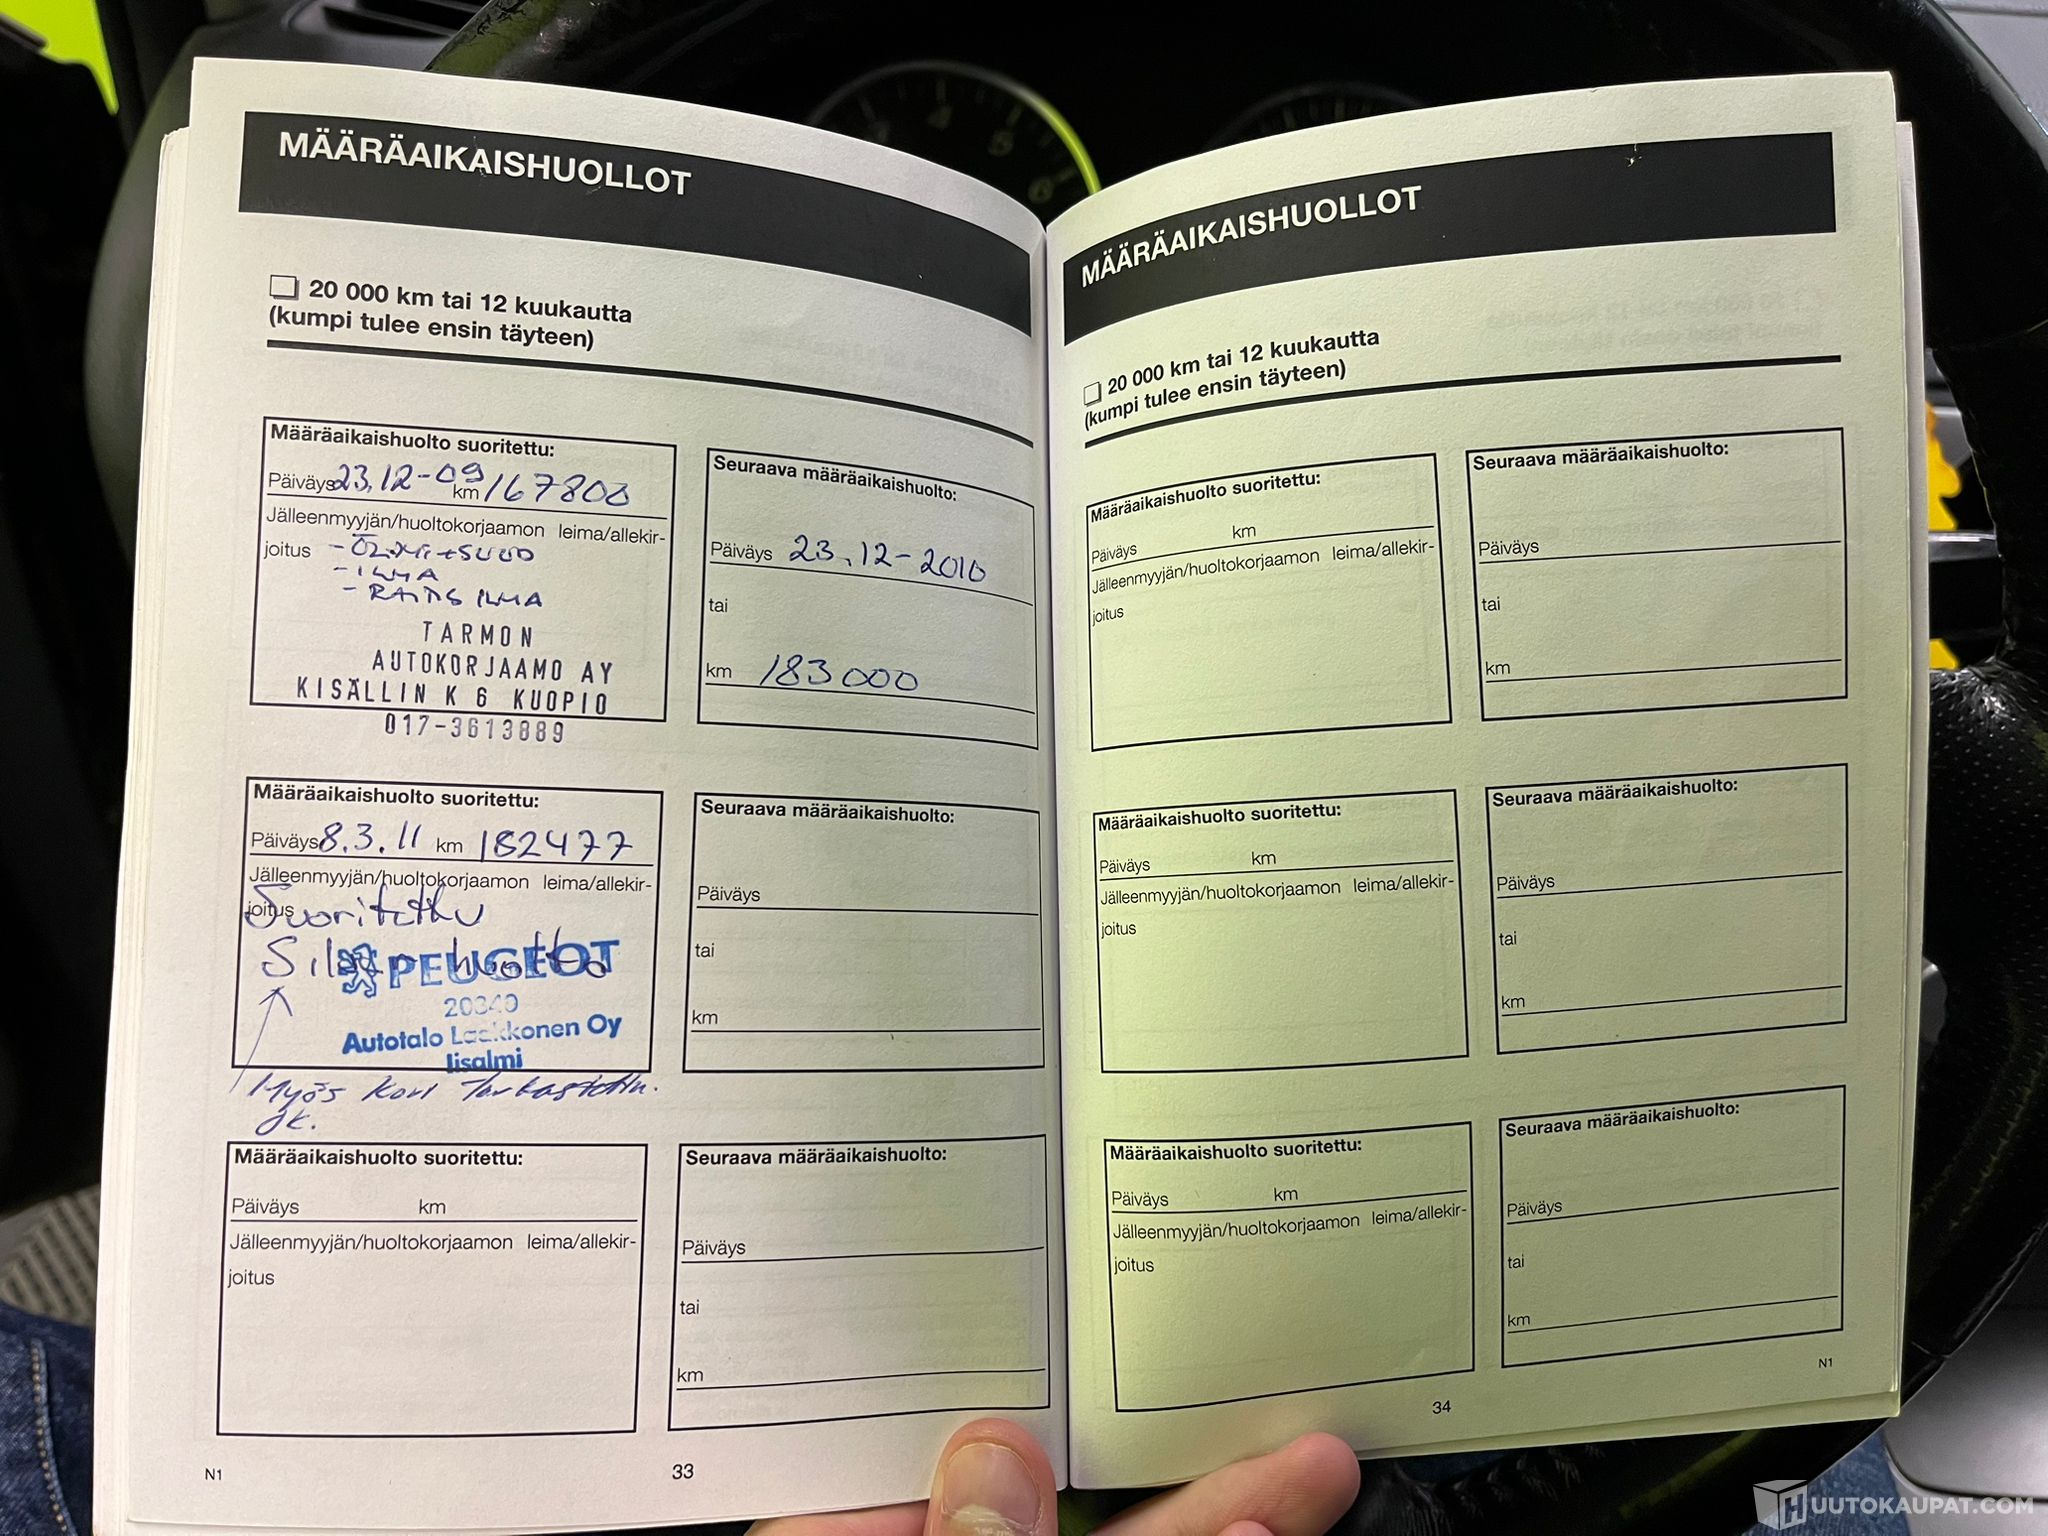 MÄÄRÄAIKAISHUOLLOT
20 000 km tai 12 kuukautta
(kumpi tulee ensin täyteen)
Määräaikaishuolto suoritettu:
Päiväys 23.12-09 km 167800
Jälleenmyyjän/huoltokorjaamon leima/allekir-
joitus - ÖLJY+SUOD
- ILMA
- RAITIS ILMA
TARMON
AUTOKORJAAMO AY
KISÄLLIN K 6 KUOPIO
017-3613889
Seuraava määräaikaishuolto:
Päiväys 23.12-2010
tai
km 183000
Määräaikaishuolto suoritettu:
Päiväys 8.3.11 km 182477
Jälleenmyyjän/huoltokorjaamon leima/allekir-
joitus
Suoritettu
huolto
PEUGEOT
20340
Autotalo Laakkonen Oy
Iisalmi
Myös kori tarkastettu.
JK.
Seuraava määräaikaishuolto:
Päiväys
tai
km
Määräaikaishuolto suoritettu:
Päiväys km
Jälleenmyyjän/huoltokorjaamon leima/allekir-
joitus
Seuraava määräaikaishuolto:
Päiväys
tai
km
N1
33
MÄÄRÄAIKAISHUOLLOT
20 000 km tai 12 kuukautta
(kumpi tulee ensin täyteen)
Määräaikaishuolto suoritettu:
Päiväys km
Jälleenmyyjän/huoltokorjaamon leima/allekir-
joitus
Seuraava määräaikaishuolto:
Päiväys
tai
km
Määräaikaishuolto suoritettu:
Päiväys km
Jälleenmyyjän/huoltokorjaamon leima/allekir-
joitus
Seuraava määräaikaishuolto:
Päiväys
tai
km
Määräaikaishuolto suoritettu:
Päiväys km
Jälleenmyyjän/huoltokorjaamon leima/allekir-
joitus
Seuraava määräaikaishuolto:
Päiväys
tai
km
34
N1
HUUTOKAUPAT.COM